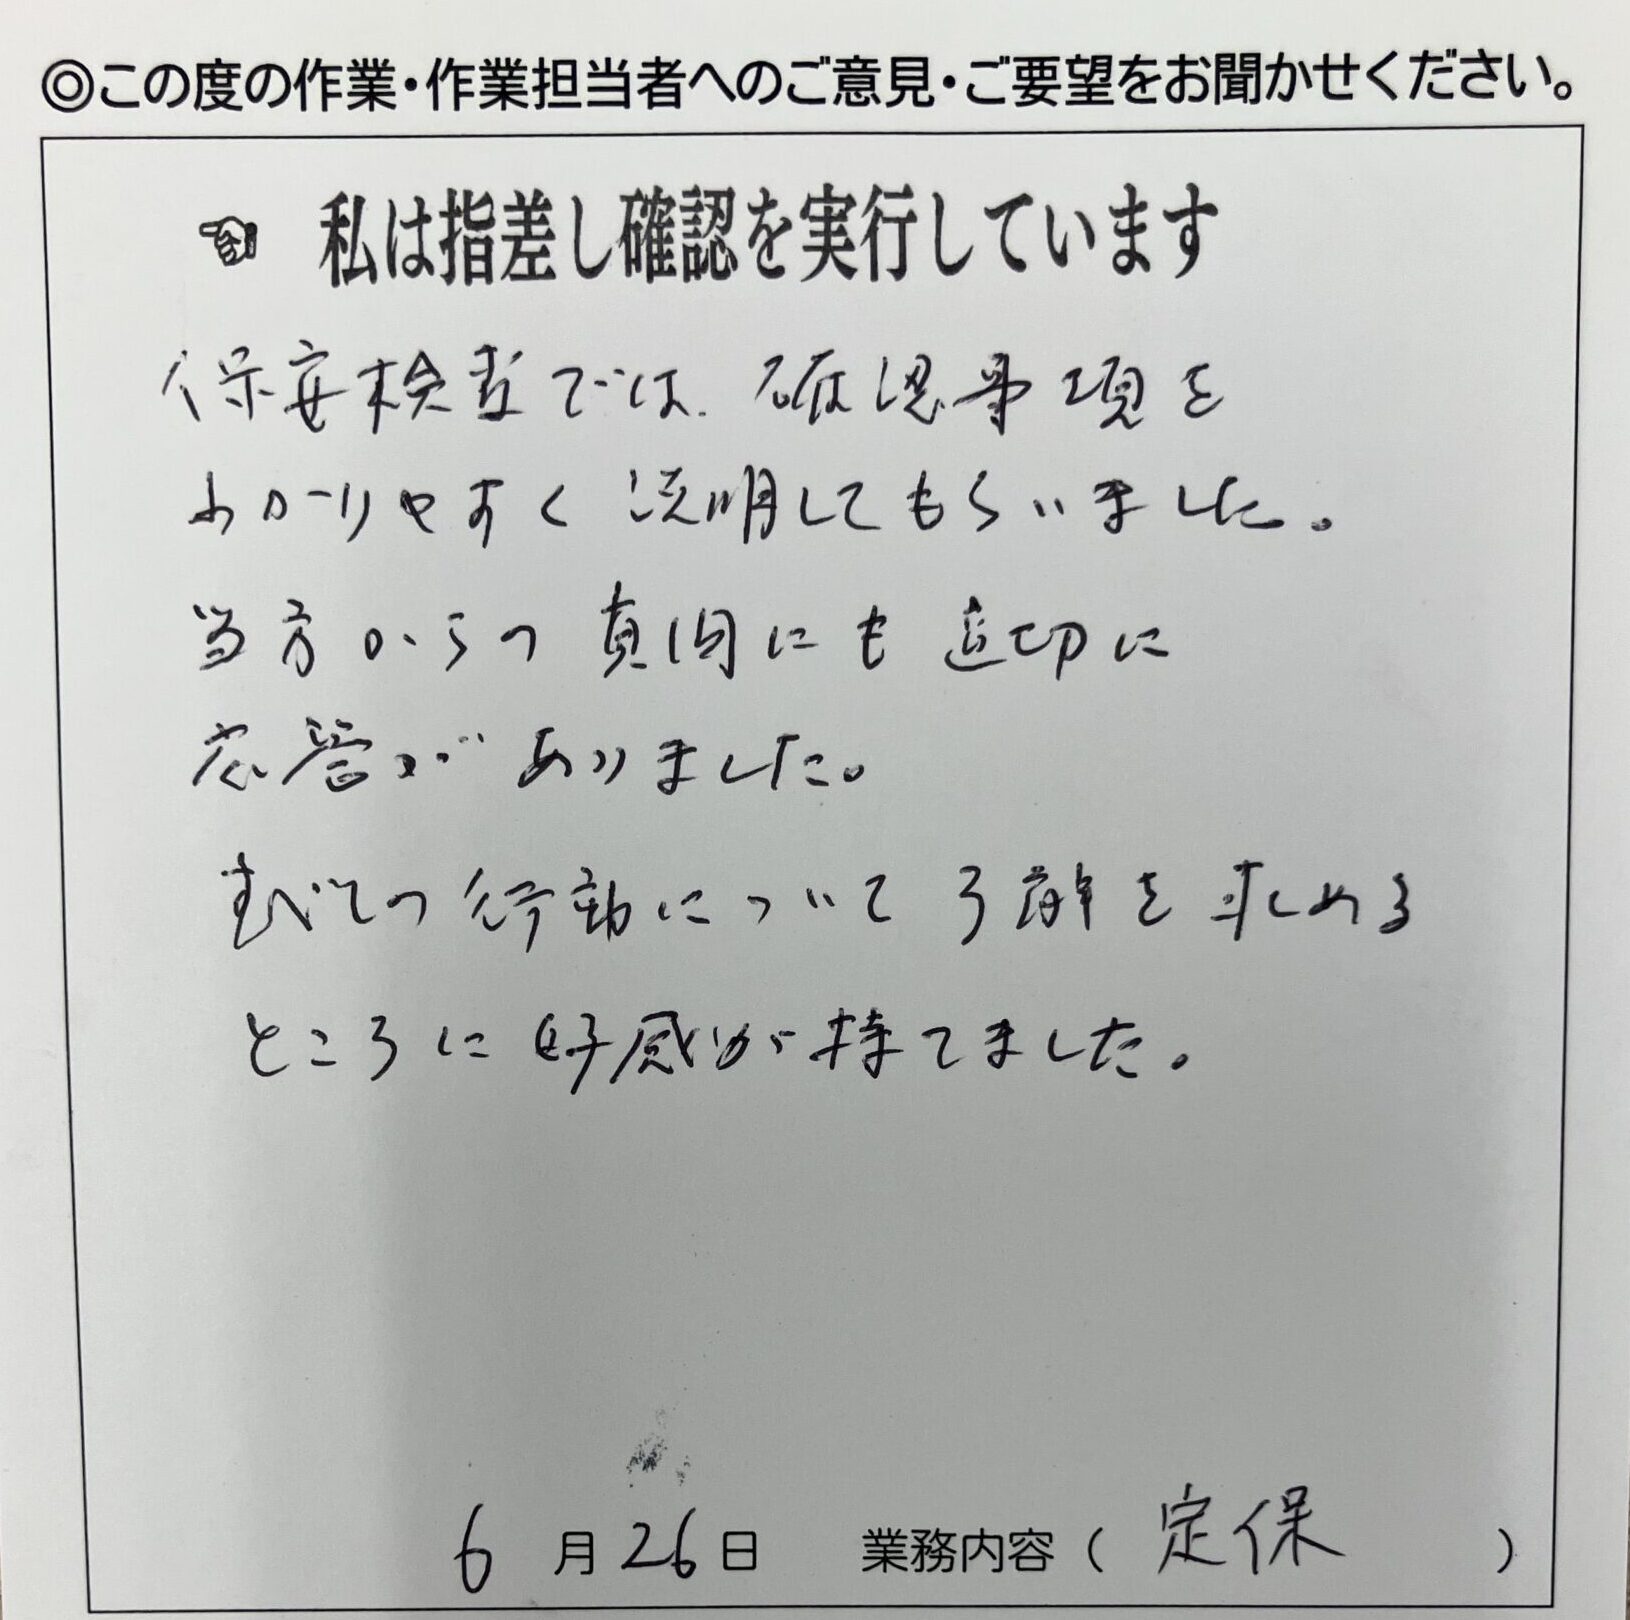 ◎この度の作業・作業担当者へのご意見・ご要望をお聞かせください。
☜ 私は指差し確認を実行しています
保安検査では、確認事項を
わかりやすく説明してもらいました。
当方からの質問にも適切に
応答がありました。
すべての行動について了解を求める
ところに好感が持てました。
6月26日 業務内容(定保)